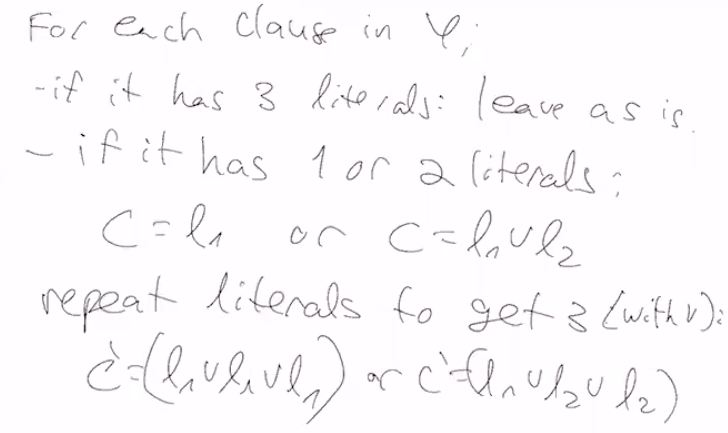 For each clause in φ;
-if it has 3 literals: leave as is.
- if it has 1 or 2 literals:
C = l₁ or C = l₁ ∨ l₂
repeat literals to get 3 (with ∨):
C' = (l₁ ∨ l₁ ∨ l₁) or C' = (l₁ ∨ l₂ ∨ l₂)